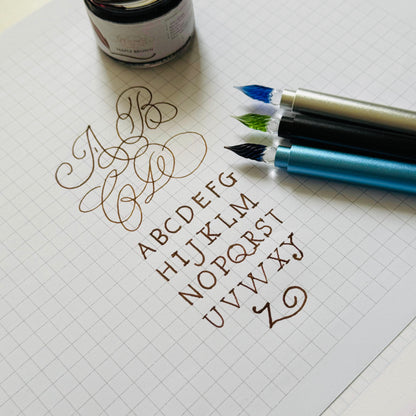 BROWN
AB
CD
ABCDEFG
HIJKLM
NOPQRST
UVWXY
Z